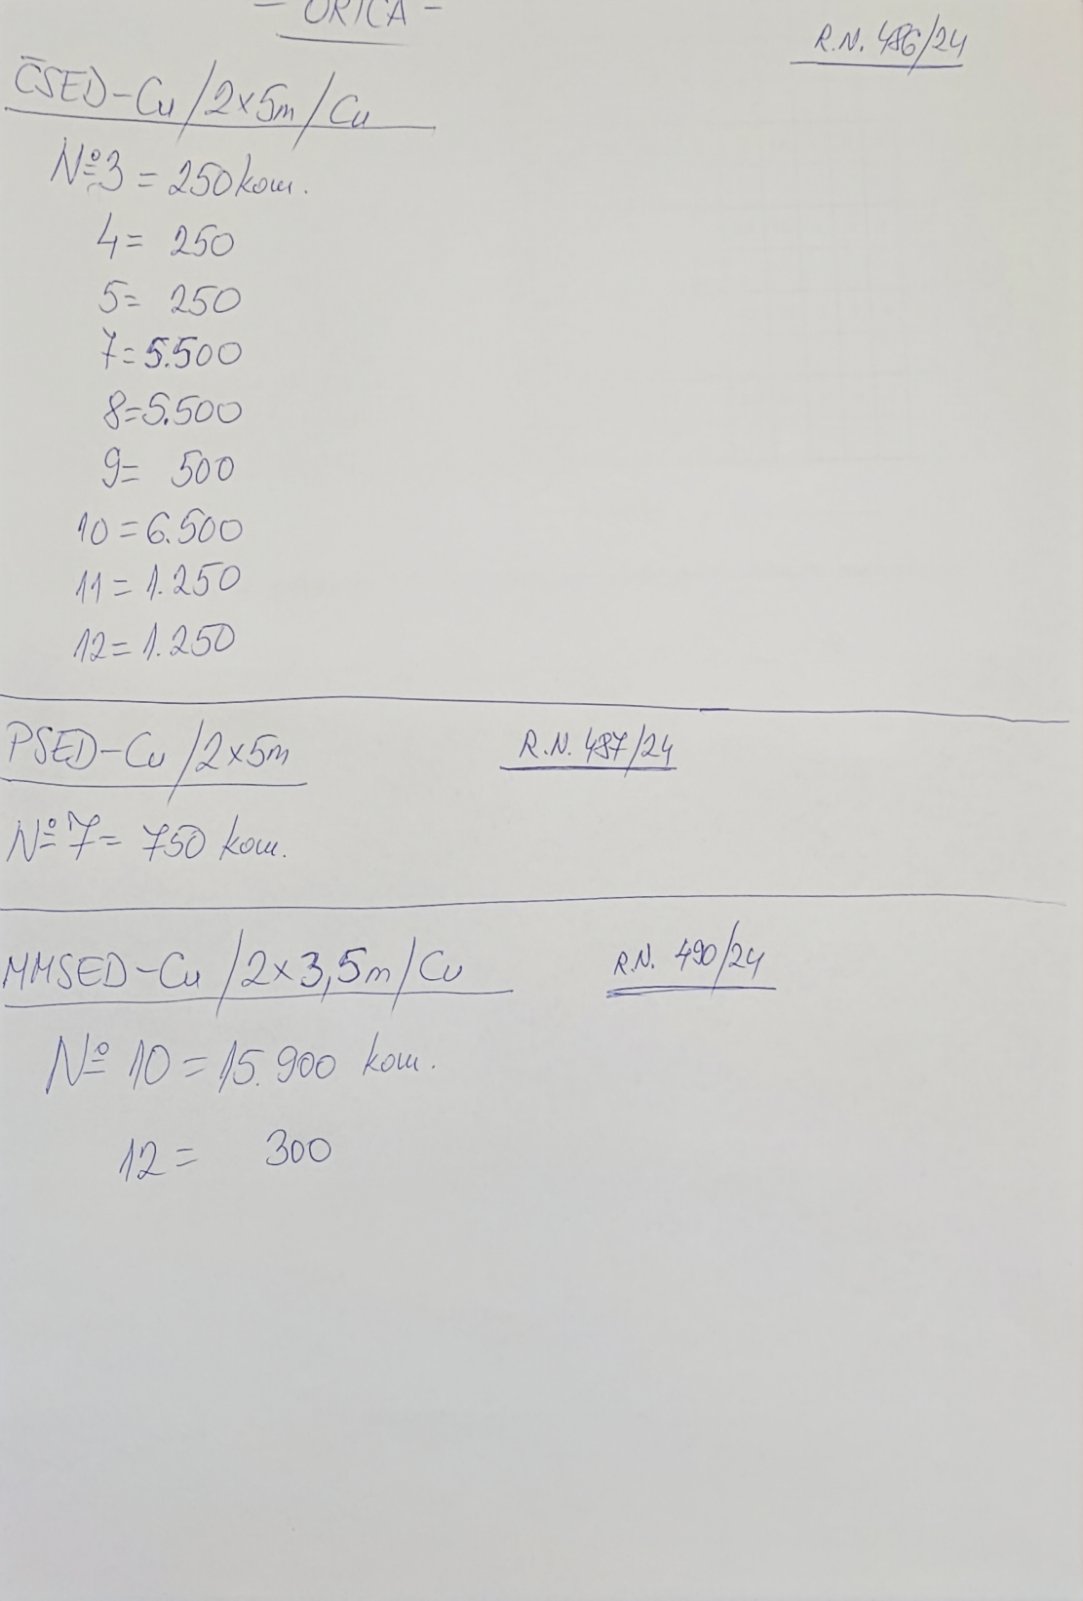 - ORICA -
R.N. 486/24
ČSED-Cu/2x5m/Cu
Nº3 = 250 kom.
4= 250
5= 250
7=5.500
8=5.500
9= 500
10=6.500
11=1.250
12=1.250
PSED-Cu/2x5m
R.N. 487/24
Nº7= 750 kom.
MMSED-Cu/2x3,5m/Cu
R.N. 490/24
Nº 10=15.900 kom.
12= 300